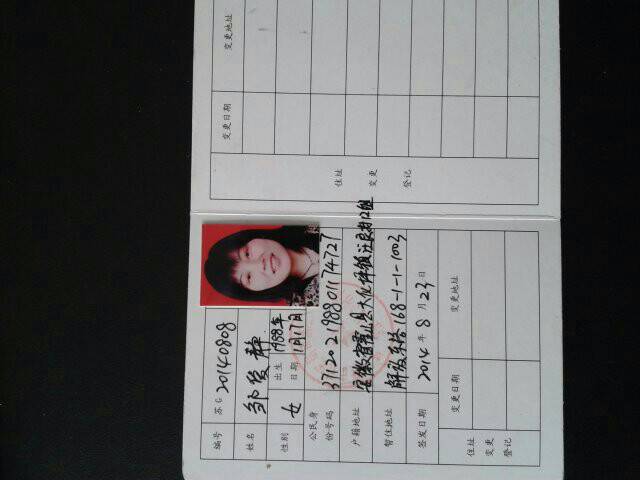 编号 苏G 20140808
姓名 邹俊静
性别 女 出生日期 1988年1月17日
公民身份号码 371202198801174727
户籍地址 安徽省霍山县大化坪镇
暂住地址 解放东路168-1-1-1003
签发日期 2014年8月23日
变更日期 变更地址
住址变更登记
变更日期 变更地址
住址变更登记